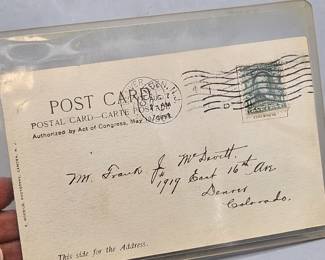 POST CARD
POSTAL CARD—CARTE POSTALE
Authorized by Act of Congress, May
AUG
AM
Mr. Frank J. McDevitt.
1919 East 16th Av
Denver
Colorado.
This side for the Address.